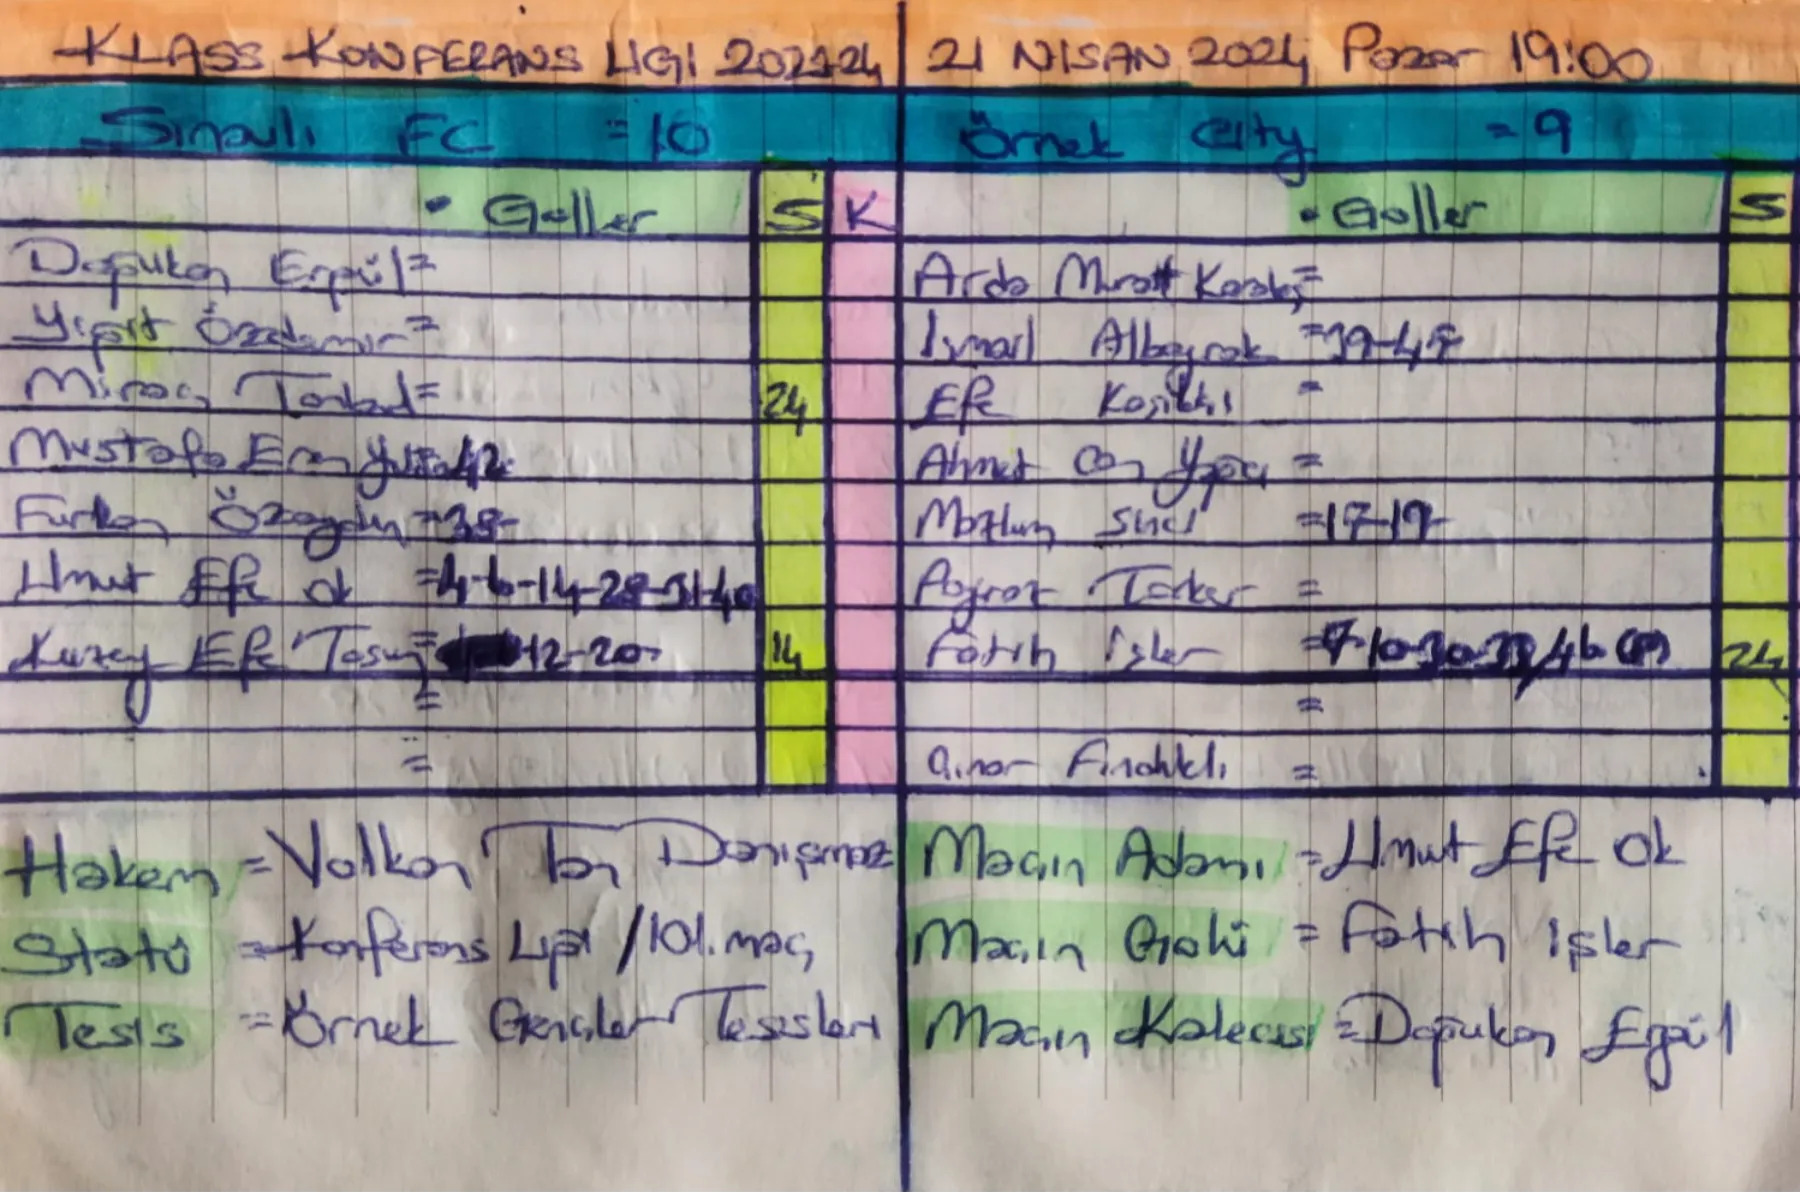 KLASS KONFERANS LİGİ 2023-24
21 NİSAN 2024 Pazar 19:00
Sinanlı FC = 10
Örnek City = 9
• Goller S K
• Goller S
Doğukan Ergül =
Arda Murat Karakaş =
Yiğit Özdemir =
İsmail Albayrak = 39-47
Miraç =
24
Efe =
Mustafa Eren 42
Ahmet Can Yağcı =
Furkan Özaydın = 38-
Mazlum = 17-19-
Umut Efe Ok = 4-6-14-28-31-40
Poyraz =
Kuzey Efe Tosun = 12-20-
14
Fatih İşler = 7-10-30-33/46 (P)
24
=
=
=
Çınar Fındıklı =
Hakem = Volkan Tan Danışmaz
Maçın Adamı = Umut Efe Ok
Statü = Konferans Ligi / 101. maç
Maçın Golü = Fatih İşler
Tesis = Örnek Gençler Tesisleri
Maçın Kalecisi = Doğukan Ergül